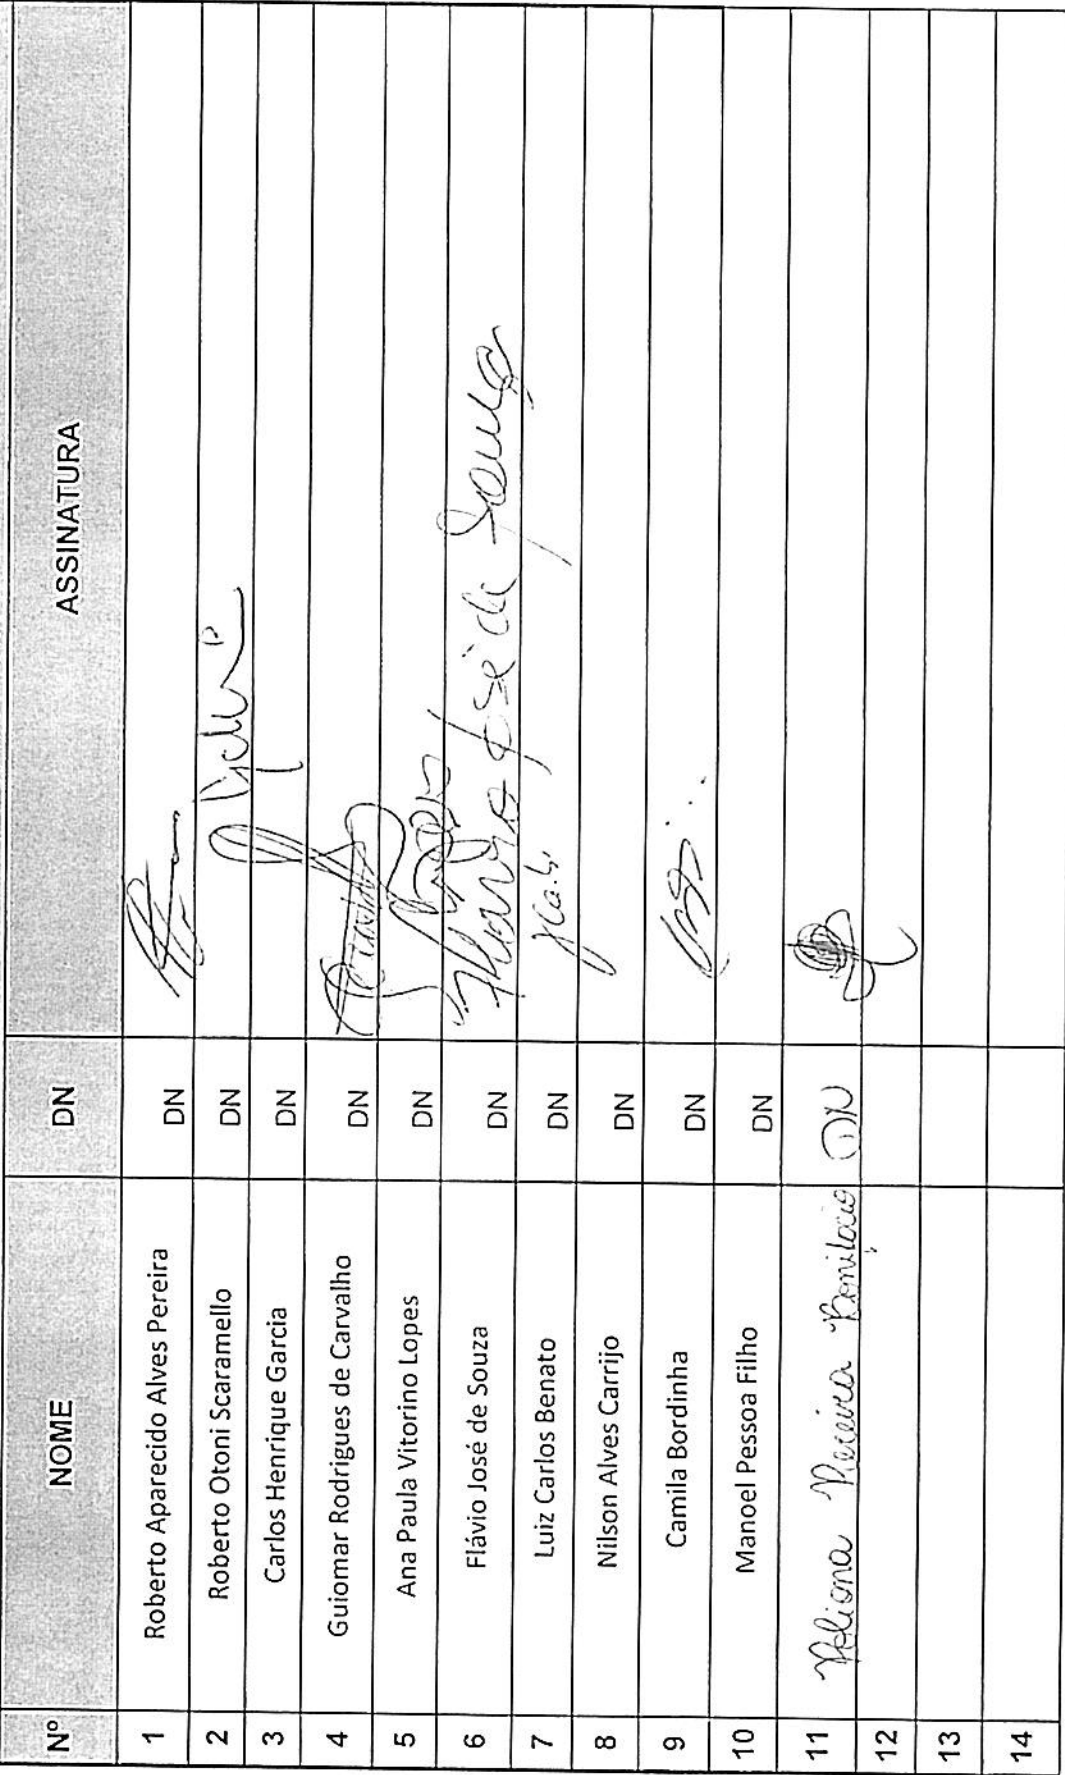 Nº NOME DN ASSINATURA
1 Roberto Aparecido Alves Pereira DN
2 Roberto Otoni Scaramello DN
3 Carlos Henrique Garcia DN
4 Guiomar Rodrigues de Carvalho DN
5 Ana Paula Vitorino Lopes DN
6 Flávio José de Souza DN Flávio José de Souza
7 Luiz Carlos Benato DN
8 Nilson Alves Carrijo DN
9 Camila Bordinha DN
10 Manoel Pessoa Filho DN
11 Poliana Pereira Bonifacio DN
12
13
14